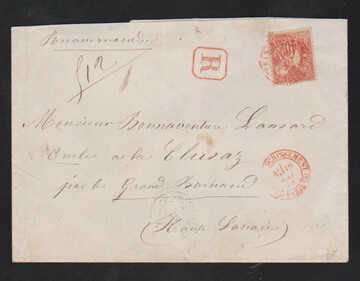 Recommandée
R
512
Monsieur Bonnaventure Lansard
Oncle a la Clusaz
par le Grand Bornand
(Haute Savoie)